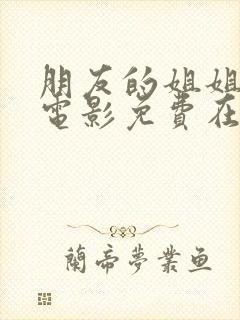 朋友的姐姐
电影免費在
蘭帝梦業鱼